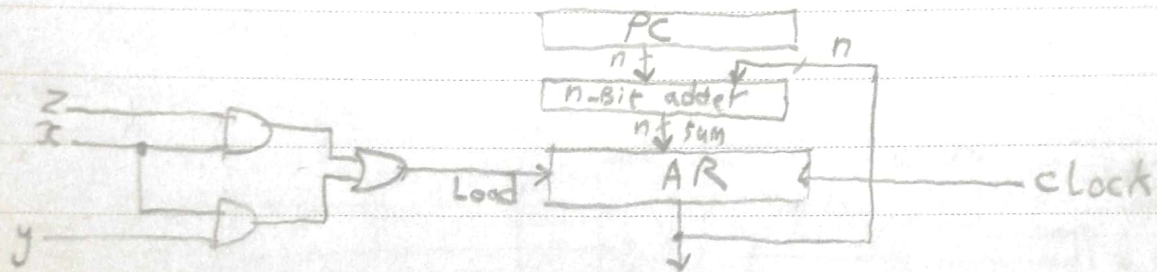 PC
n
n
n-Bit adder
n sum
z
x
Load
AR
clock
y